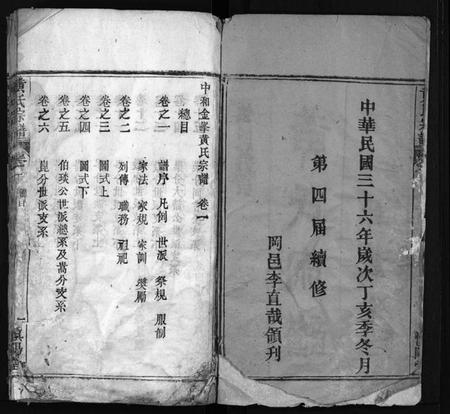 中華民國三十六年歲次丁亥季冬月
第四屆續修
岡邑李直哉領刊
中和金峯黃氏宗譜 卷一
總目
卷之一 譜序 凡例 世派 祭規 服制
家法 家規 家訓 獎勵
卷之二 列傳 職務 祖祀
卷之三 圖式上
卷之四 圖式下
卷之五 伯琰公世派總系及嵩分支系
卷之六 崑分世派支系
黃氏宗譜
總目
一